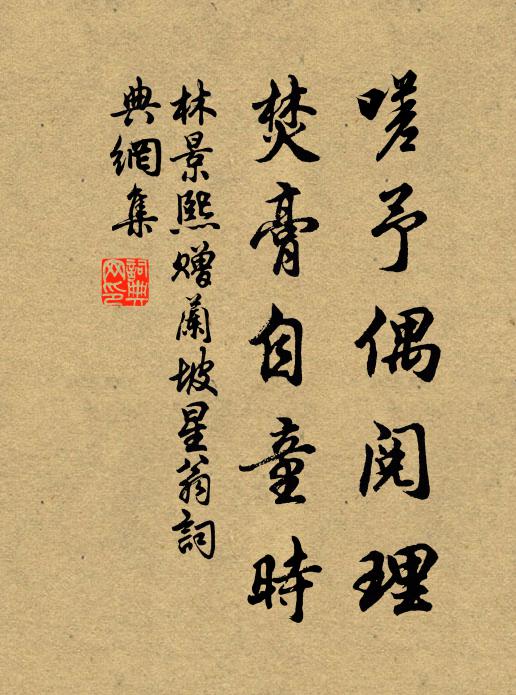 嗟予偶閱理
焚膏自童時
林景熙贈蘭坡星翁詞
典網集
詞典網印